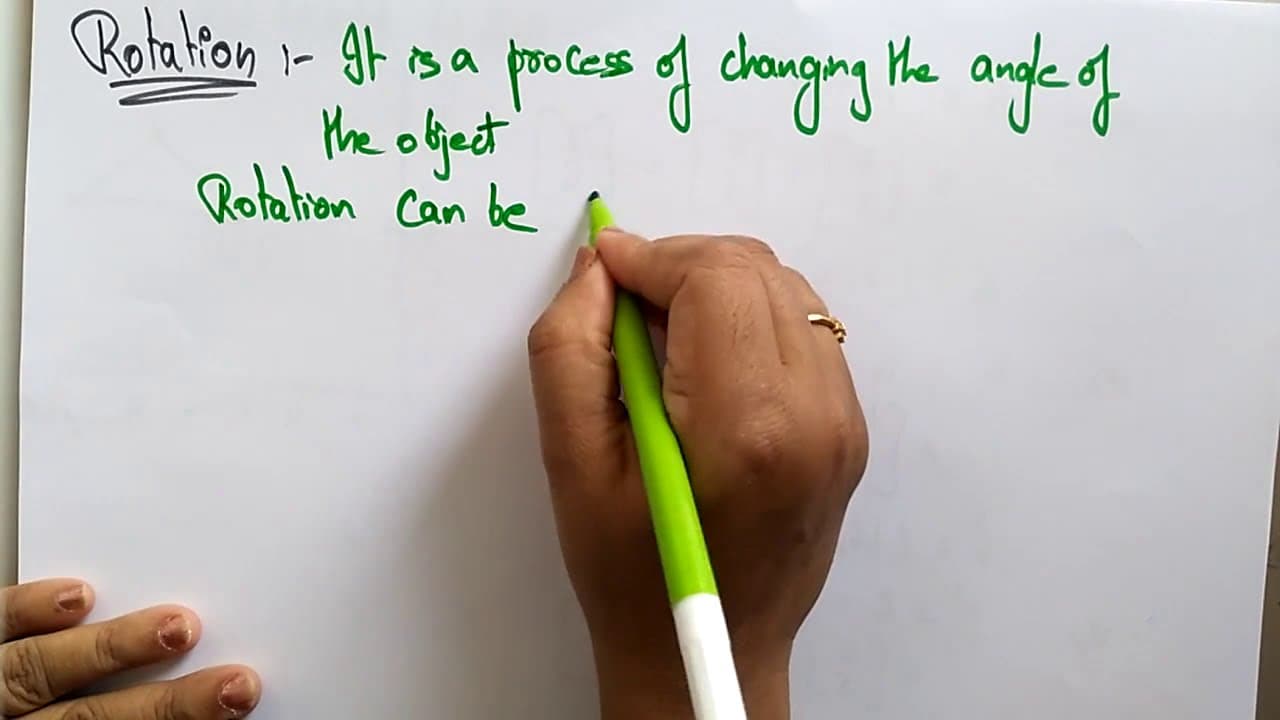 Rotation :- It is a process of changing the angle of
the object
Rotation can be